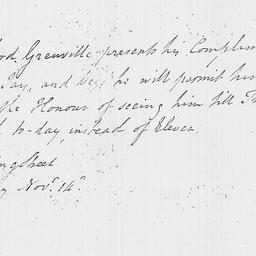 ord Grenville presents his Complim
Jay, and begs he will permit him
the Honour of seeing him till Th
to-day, instead of Eleven.
ng Street
Novr. 14th